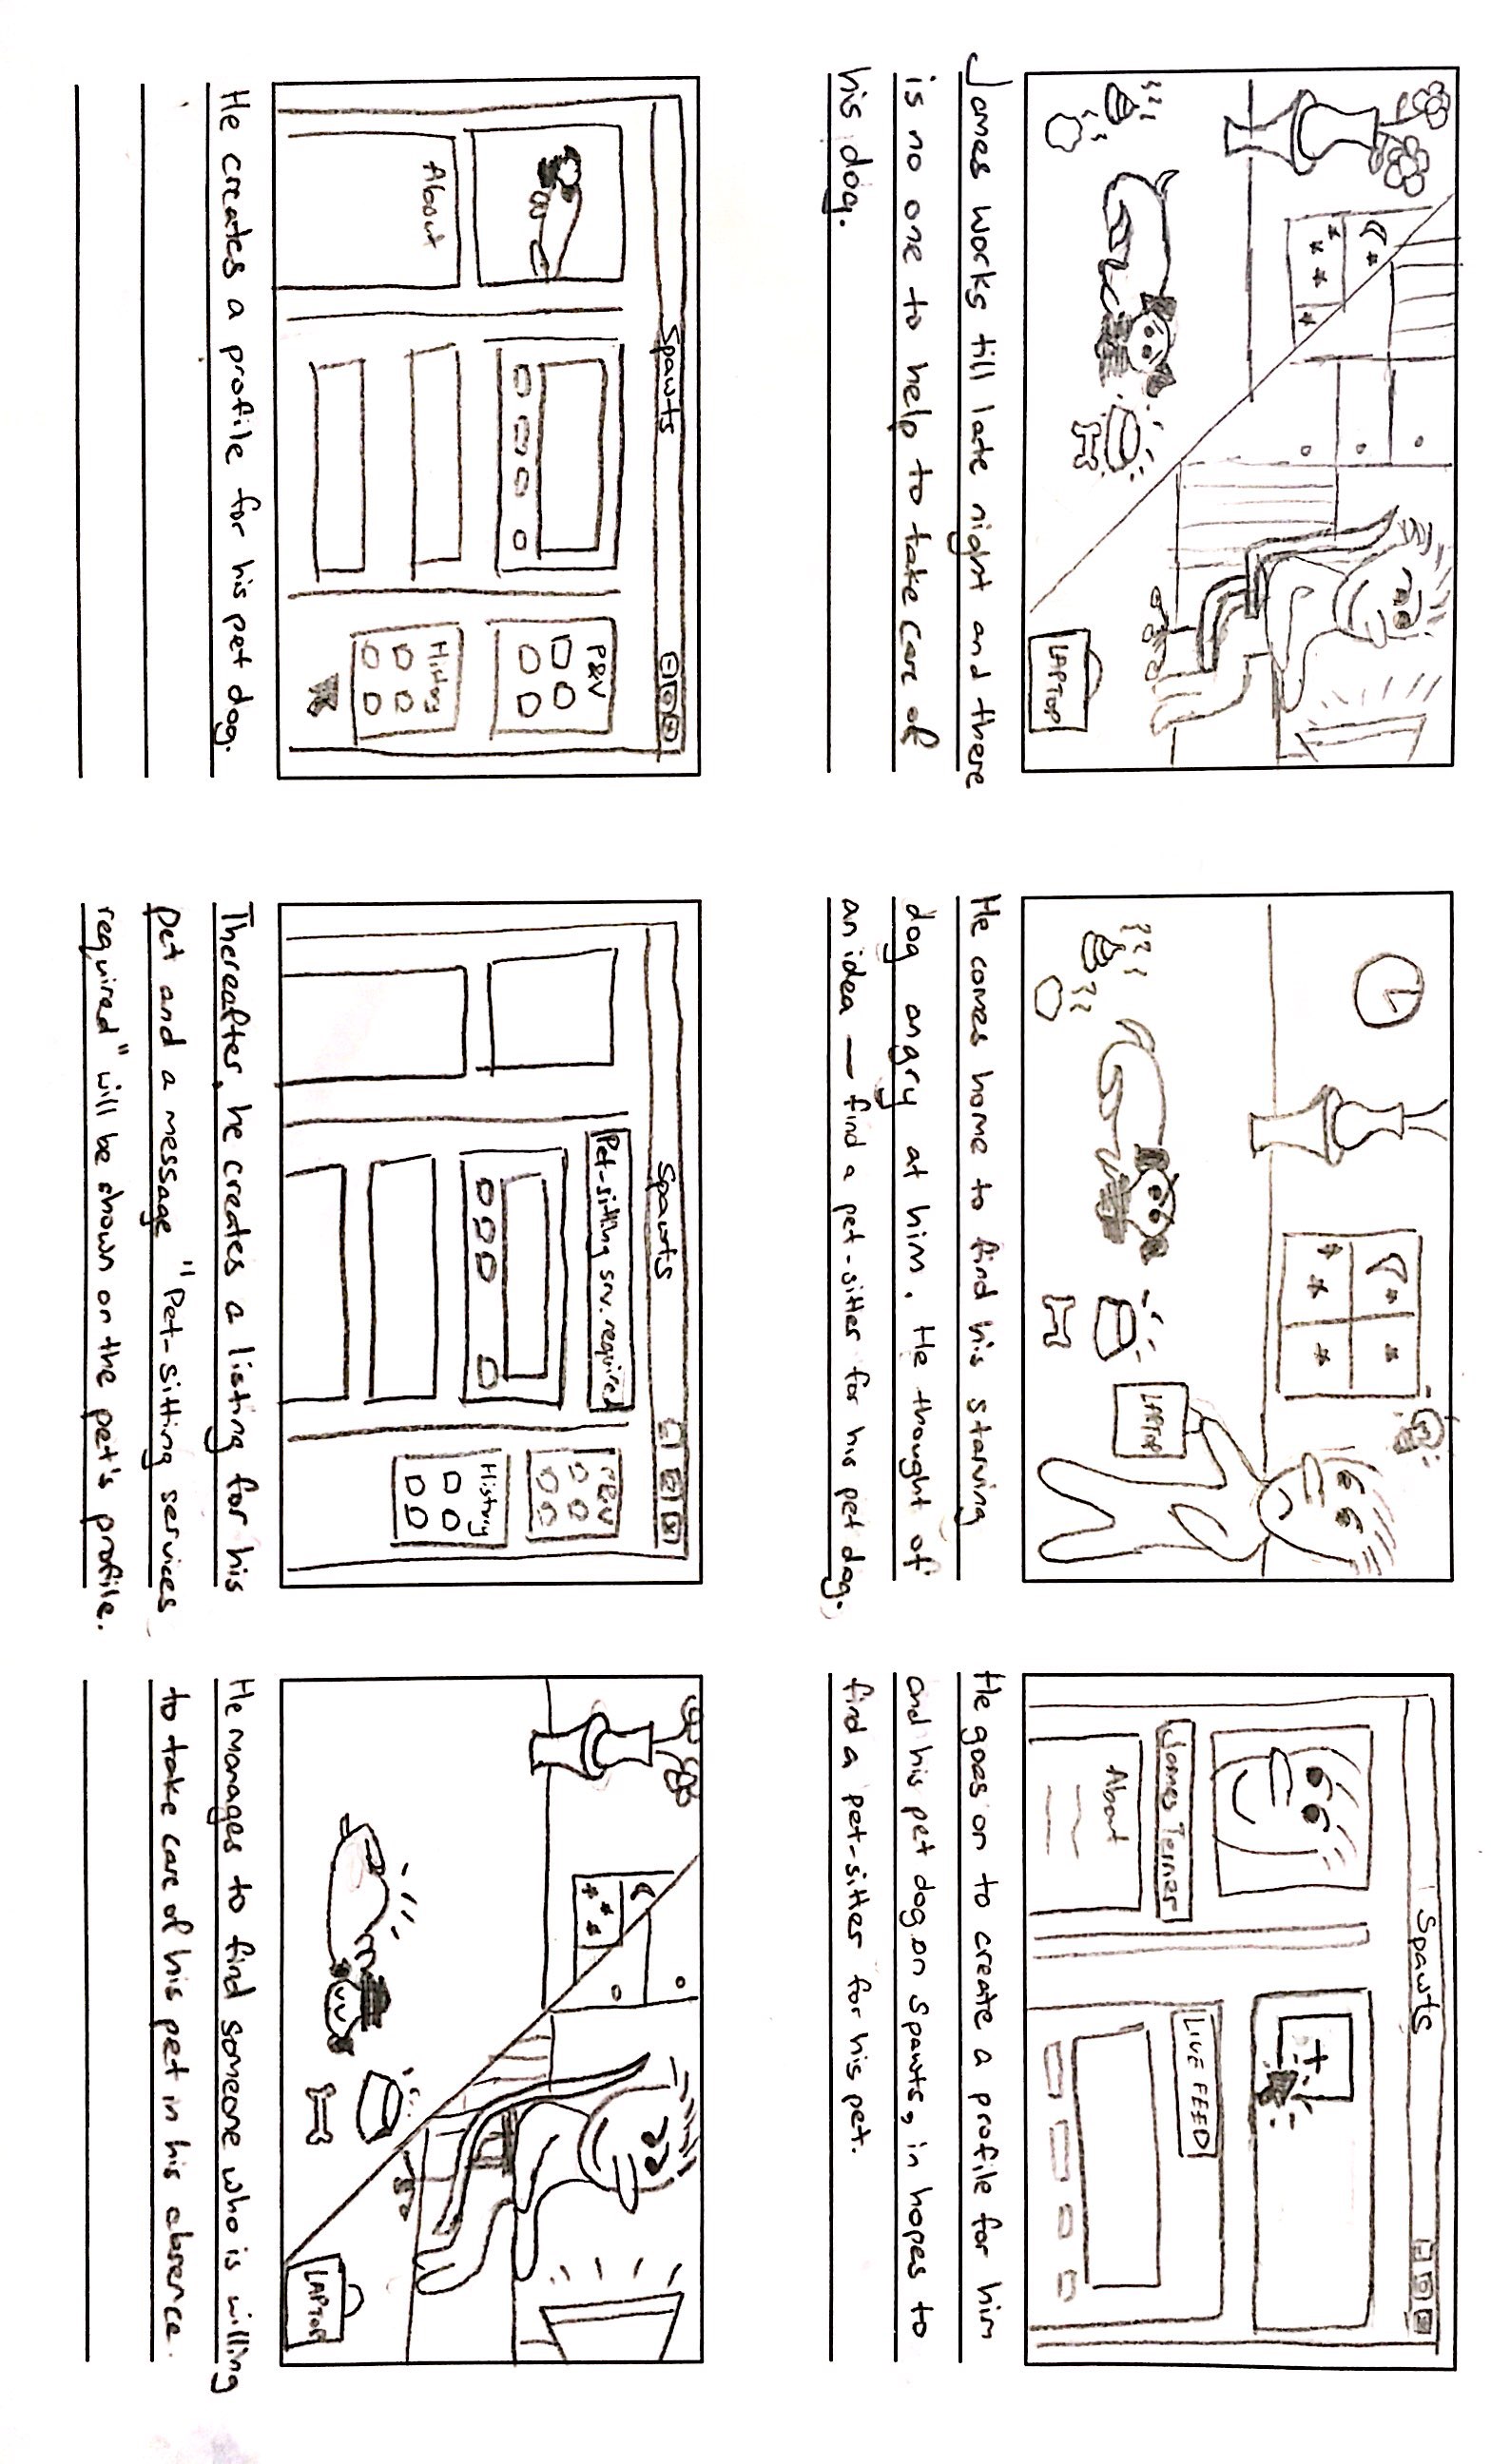 LAPTOP
James works till late night and there
is no one to help to take care of
his dog.
LAPTOP
He comes home to find his starving
dog angry at him. He thought of
an idea — find a pet-sitter for his pet dog.
Spawts
James Terner
About
LIVE FEED
He goes on to create a profile for him
and his pet dog on Spawts, in hopes to
find a pet-sitter for his pet.
Spawts
About
P&V
History
He creates a profile for his pet dog.
Spawts
Pet-sitting srv. required
P&V
History
Thereafter, he creates a listing for his
pet and a message "Pet-sitting services
required" will be shown on the pet's profile.
LAPTOP
He manages to find someone who is willing
to take care of his pet in his absence.